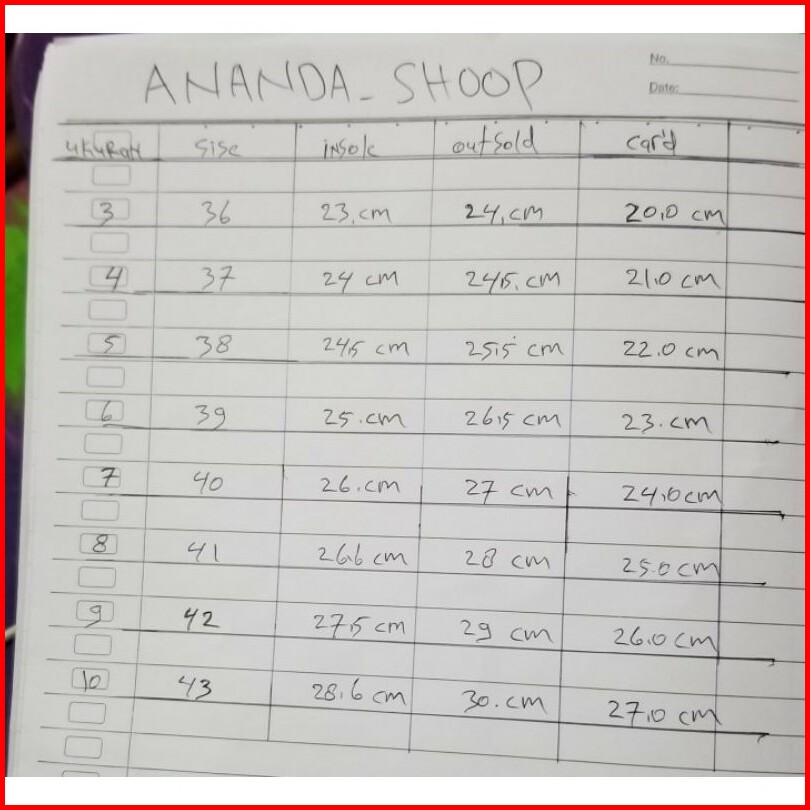 No.
ANANDA_SHOOP
Date:
UKURAN sise insole outsold card
3 36 23,cm 24,cm 20,0 cm
4 37 24 cm 24,5.cm 21.0 cm
5 38 24,5 cm 25,5 cm 22.0 cm
6 39 25.cm 26,5 cm 23.cm
7 40 26.cm 27 cm 24,0 cm
8 41 26,6 cm 28 cm 25.0 cm
9 42 27,5 cm 29 cm 26.0 cm
10 43 28.6 cm 30.cm 27,0 cm